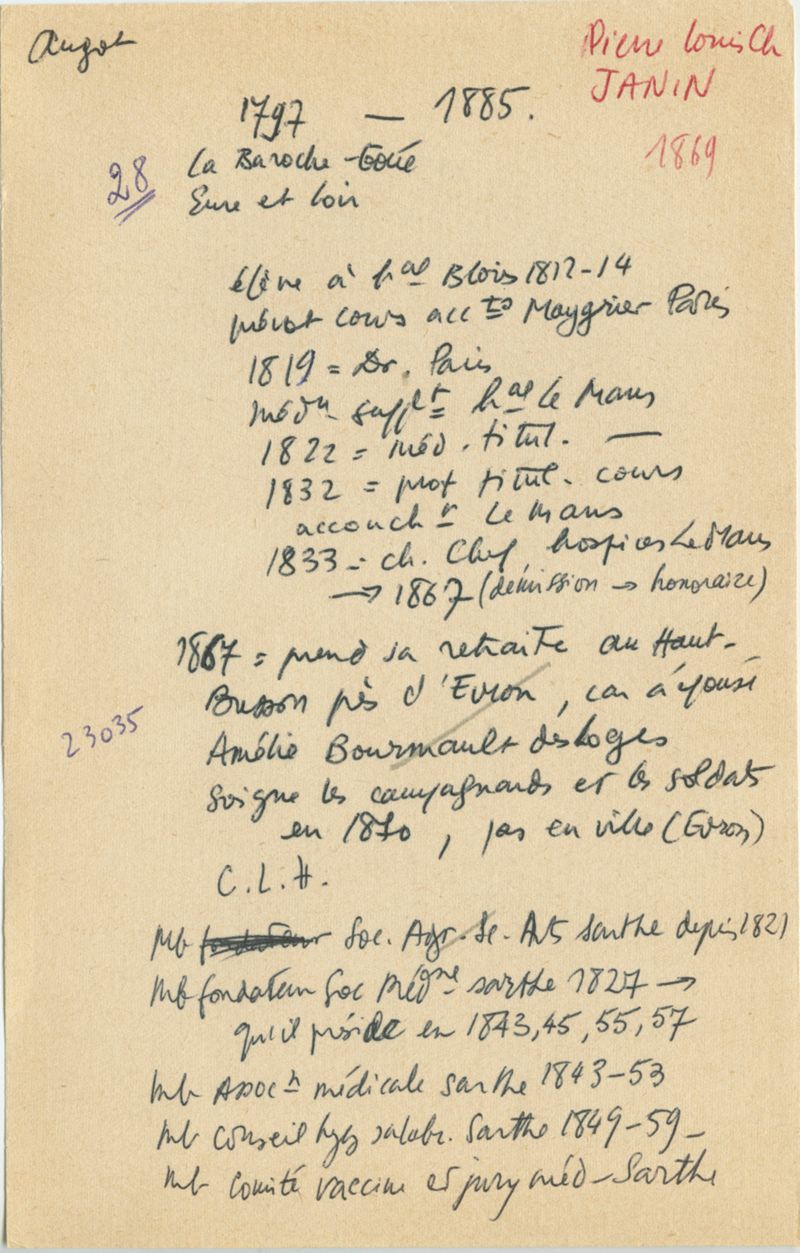 Angot
Pierre Louis Ch
JANIN
1869
1797 — 1885.
28
La Baroche-Goué
Eure et Loir
élève à hal Blois 1812-14
prévot cours accts Maygrier Paris
1819 = Dr. Paris
médn supplt hal Le Mans
1822 = méd. titul. —
1832 = prof titul. cours
accouchr Le Mans
1833 - ch. Chef hospices Le Mans
→ 1867 (démission → honoraire)
1867 = prend sa retraite au Haut-
Busson près d'Evron, car a épousé
23035
Amélie Bourmault des Loges
soigne les campagnards et les soldats
en 1870, pas en ville (Evron)
C.L.H.
Mb fondateur Soc. Agr. Sc. Arts Sarthe depuis 1821
Mb fondateur Soc Médne Sarthe 1827 →
qu'il préside en 1843, 45, 55, 57
Mb Assocn médicale Sarthe 1843-53
Mb Conseil hyg salubr. Sarthe 1849-59-
Mb Comité vaccine et jury méd-Sarthe